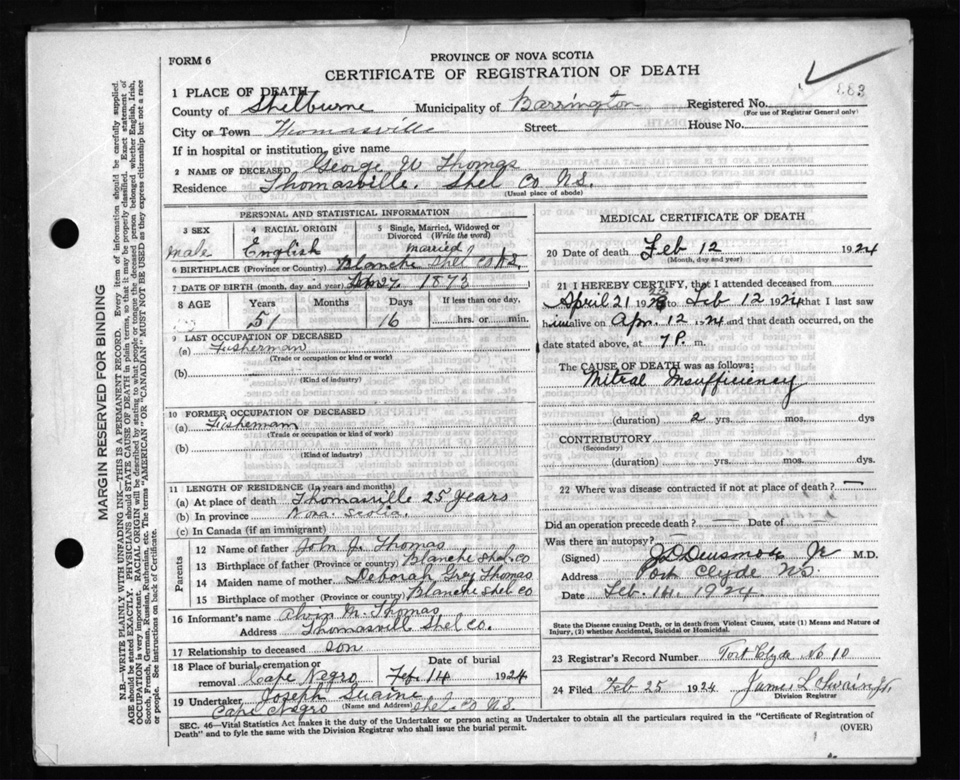 FORM 6
PROVINCE OF NOVA SCOTIA
CERTIFICATE OF REGISTRATION OF DEATH
1 PLACE OF DEATH
County of Shelburne Municipality of Barrington Registered No. 883
(For use of Registrar General only)
City or Town Thomasville Street House No.
If in hospital or institution, give name
2 NAME OF DECEASED George W Thomas
Residence Thomasville. Shel Co N.S.
(Usual place of abode)
PERSONAL AND STATISTICAL INFORMATION
3 SEX male
4 RACIAL ORIGIN English
5 Single, Married, Widowed or Divorced (Write the word) married
6 BIRTHPLACE (Province or Country) Blanche Shel Co N.S.
7 DATE OF BIRTH (month, day and year) 27 1873
8 AGE Years 51 Months Days 16 If less than one day, hrs. or min.
9 LAST OCCUPATION OF DECEASED
(a) Fisherman
(Trade or occupation or kind of work)
(b)
(Kind of industry)
10 FORMER OCCUPATION OF DECEASED
(a) Fisherman
(Trade or occupation or kind of work)
(b)
(Kind of industry)
11 LENGTH OF RESIDENCE (In years and months)
(a) At place of death Thomasville 25 years
(b) In province Nova Scotia.
(c) In Canada (if an immigrant)
Parents
12 Name of father John J. Thomas
13 Birthplace of father (Province or country) Blanche Shel Co
14 Maiden name of mother Deborah Grey Thomas
15 Birthplace of mother (Province or country) Blanche Shel Co
16 Informant's name Alvin M. Thomas
Address Thomasvill Shel Co.
17 Relationship to deceased son
18 Place of burial, cremation or removal Cape Negro Date of burial Feb 14 1924
19 Undertaker Joseph Swaine
(Name and Address) Cape Negro Shel Co N.S.
MEDICAL CERTIFICATE OF DEATH
20 Date of death Feb 12 1924
(Month, day and year)
21 I HEREBY CERTIFY, that I attended deceased from
April 21 1923 to Feb 12 1924 that I last saw
him alive on Apr. 12 1924 and that death occurred, on
date stated above, at 7 P. m.
The CAUSE OF DEATH was as follows:
Mitral Insufficiency
(duration) 2 yrs. mos. dys
CONTRIBUTORY
(Secondary)
(duration) yrs. mos. dys.
22 Where was disease contracted if not at place of death? —
Did an operation precede death? — Date of —
Was there an autopsy?
(Signed) Jr M.D.
Address Port Clyde N.S.
Feb. 14. 1924.
State the Disease causing Death, or in death from Violent Causes, state (1) Means and Nature of
Injury, (2) whether Accidental, Suicidal or Homicidal.
23 Registrar's Record Number Port Clyde No 10
24 Filed Feb 25 1924 James
Division Registrar
SEC. 46—Vital Statistics Act makes it the duty of the Undertaker or person acting as Undertaker to obtain all the particulars required in the "Certificate of Registration of
Death" and to fyle the same with the Division Registrar who shall issue the burial permit.
(OVER)
MARGIN RESERVED FOR BINDING
N.B.—WRITE PLAINLY WITH UNFADING INK—THIS IS A PERMANENT RECORD. Every item of information should be carefully supplied.
AGE should be stated EXACTLY. PHYSICIANS should STATE CAUSE OF DEATH in plain terms, so that it may be properly classified. Exact statement of
OCCUPATION is very important. RACIAL ORIGIN will be described by stating to what people or tongue the deceased person belonged whether English, Irish,
Scotch, French, German, Russian, Ruthenian, etc. The terms "AMERICAN" OR "CANADIAN" MUST NOT BE USED as they express citizenship but not a race
or people. See instructions on back of Certificate.